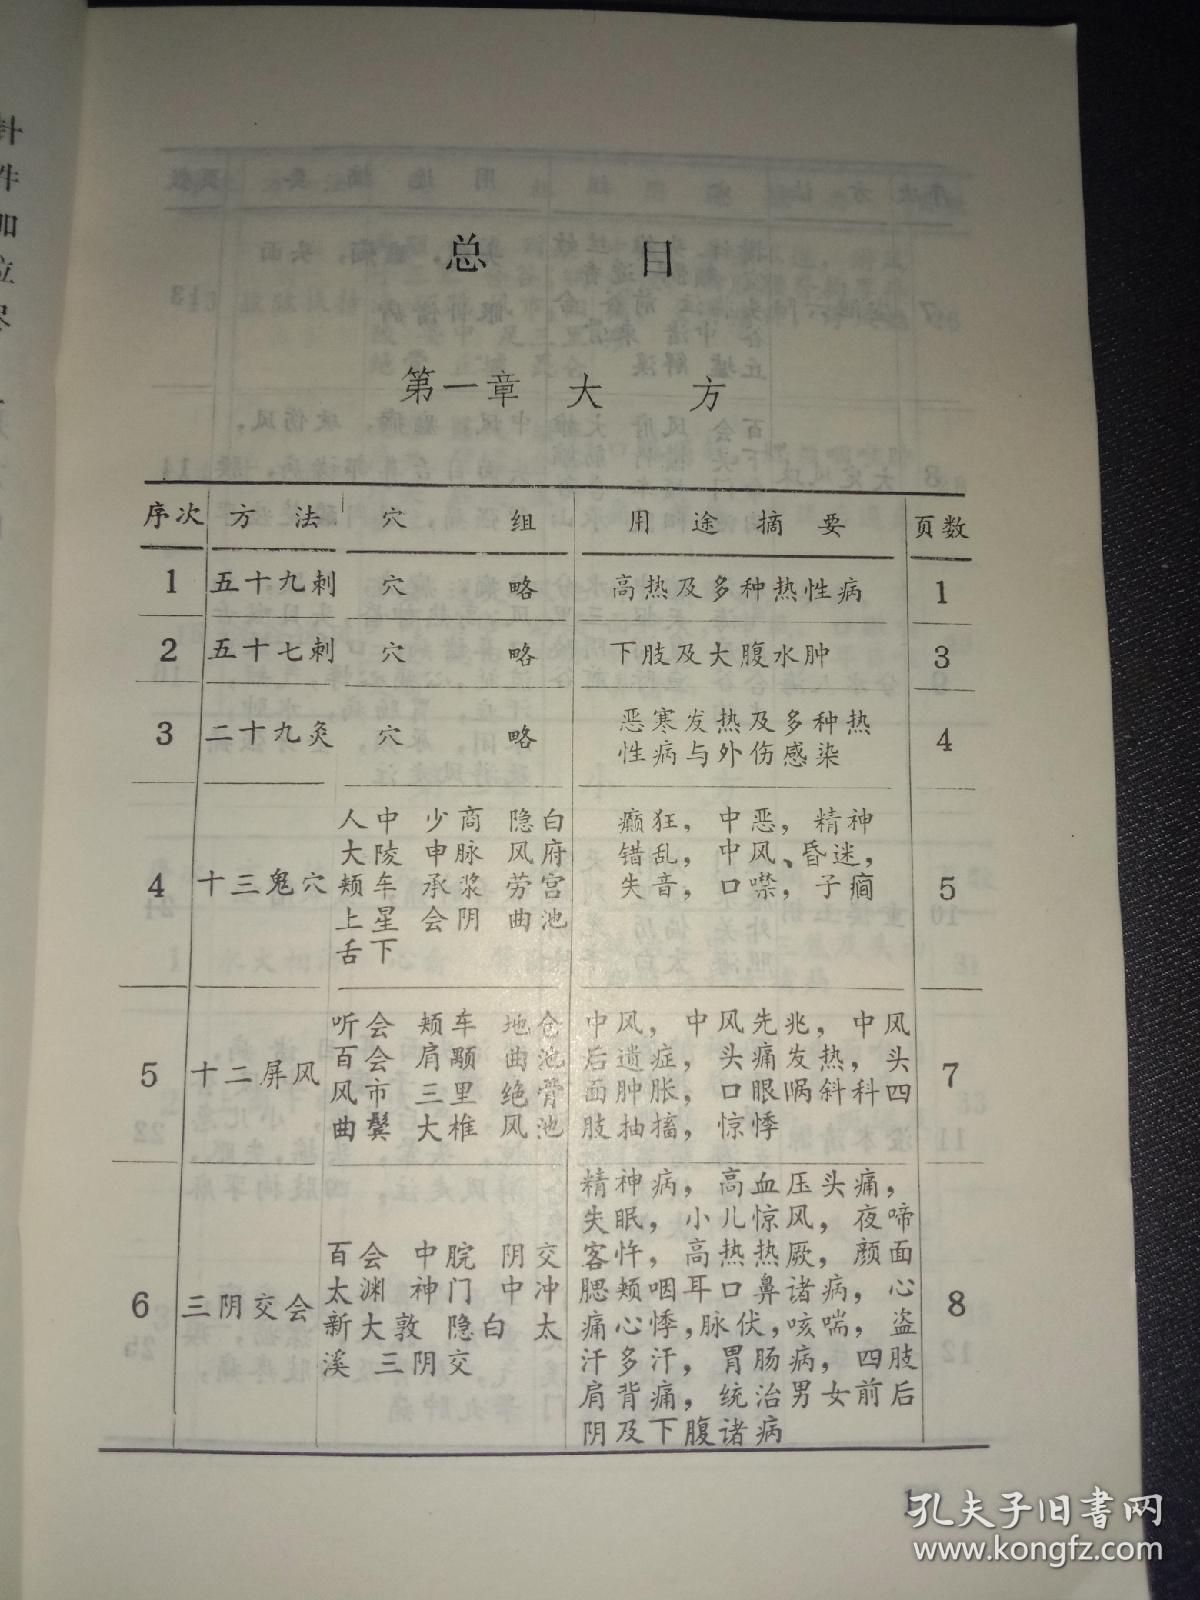 总 目
第一章 大 方
序次 方 法 穴 组 用 途 摘 要 页数
1 五十九刺 穴 略 高热及多种热性病 1
2 五十七刺 穴 略 下肢及大腹水肿 3
3 二十九灸 穴 略 恶寒发热及多种热
性病与外伤感染 4
4 十三鬼穴
人中 少商 隐白
大陵 申脉 风府
颊车 承浆 劳宫
上星 会阴 曲池
舌下
癫狂，中恶，精神
错乱，中风、昏迷，
失音，口噤，子痫
5
5 十二屏风
听会 颊车 地仓
百会 肩颙 曲池
风市 三里 绝骨
曲鬓 大椎 风池
中风，中风先兆，中风
后遗症，头痛发热，头
面肿胀，口眼㖞斜科四
肢抽搐，惊悸
7
6 三阴交会
百会 中脘 阴交
太渊 神门 中冲
新大敦 隐白 太
溪 三阴交
精神病，高血压头痛，
失眠，小儿惊风，夜啼
客忤，高热热厥，颜面
腮颊咽耳口鼻诸病，心
痛心悸，脉伏，咳喘，盗
汗多汗，胃肠病，四肢
肩背痛，统治男女前后
阴及下腹诸病
8
1
孔夫子旧书网
www.kongfz.com